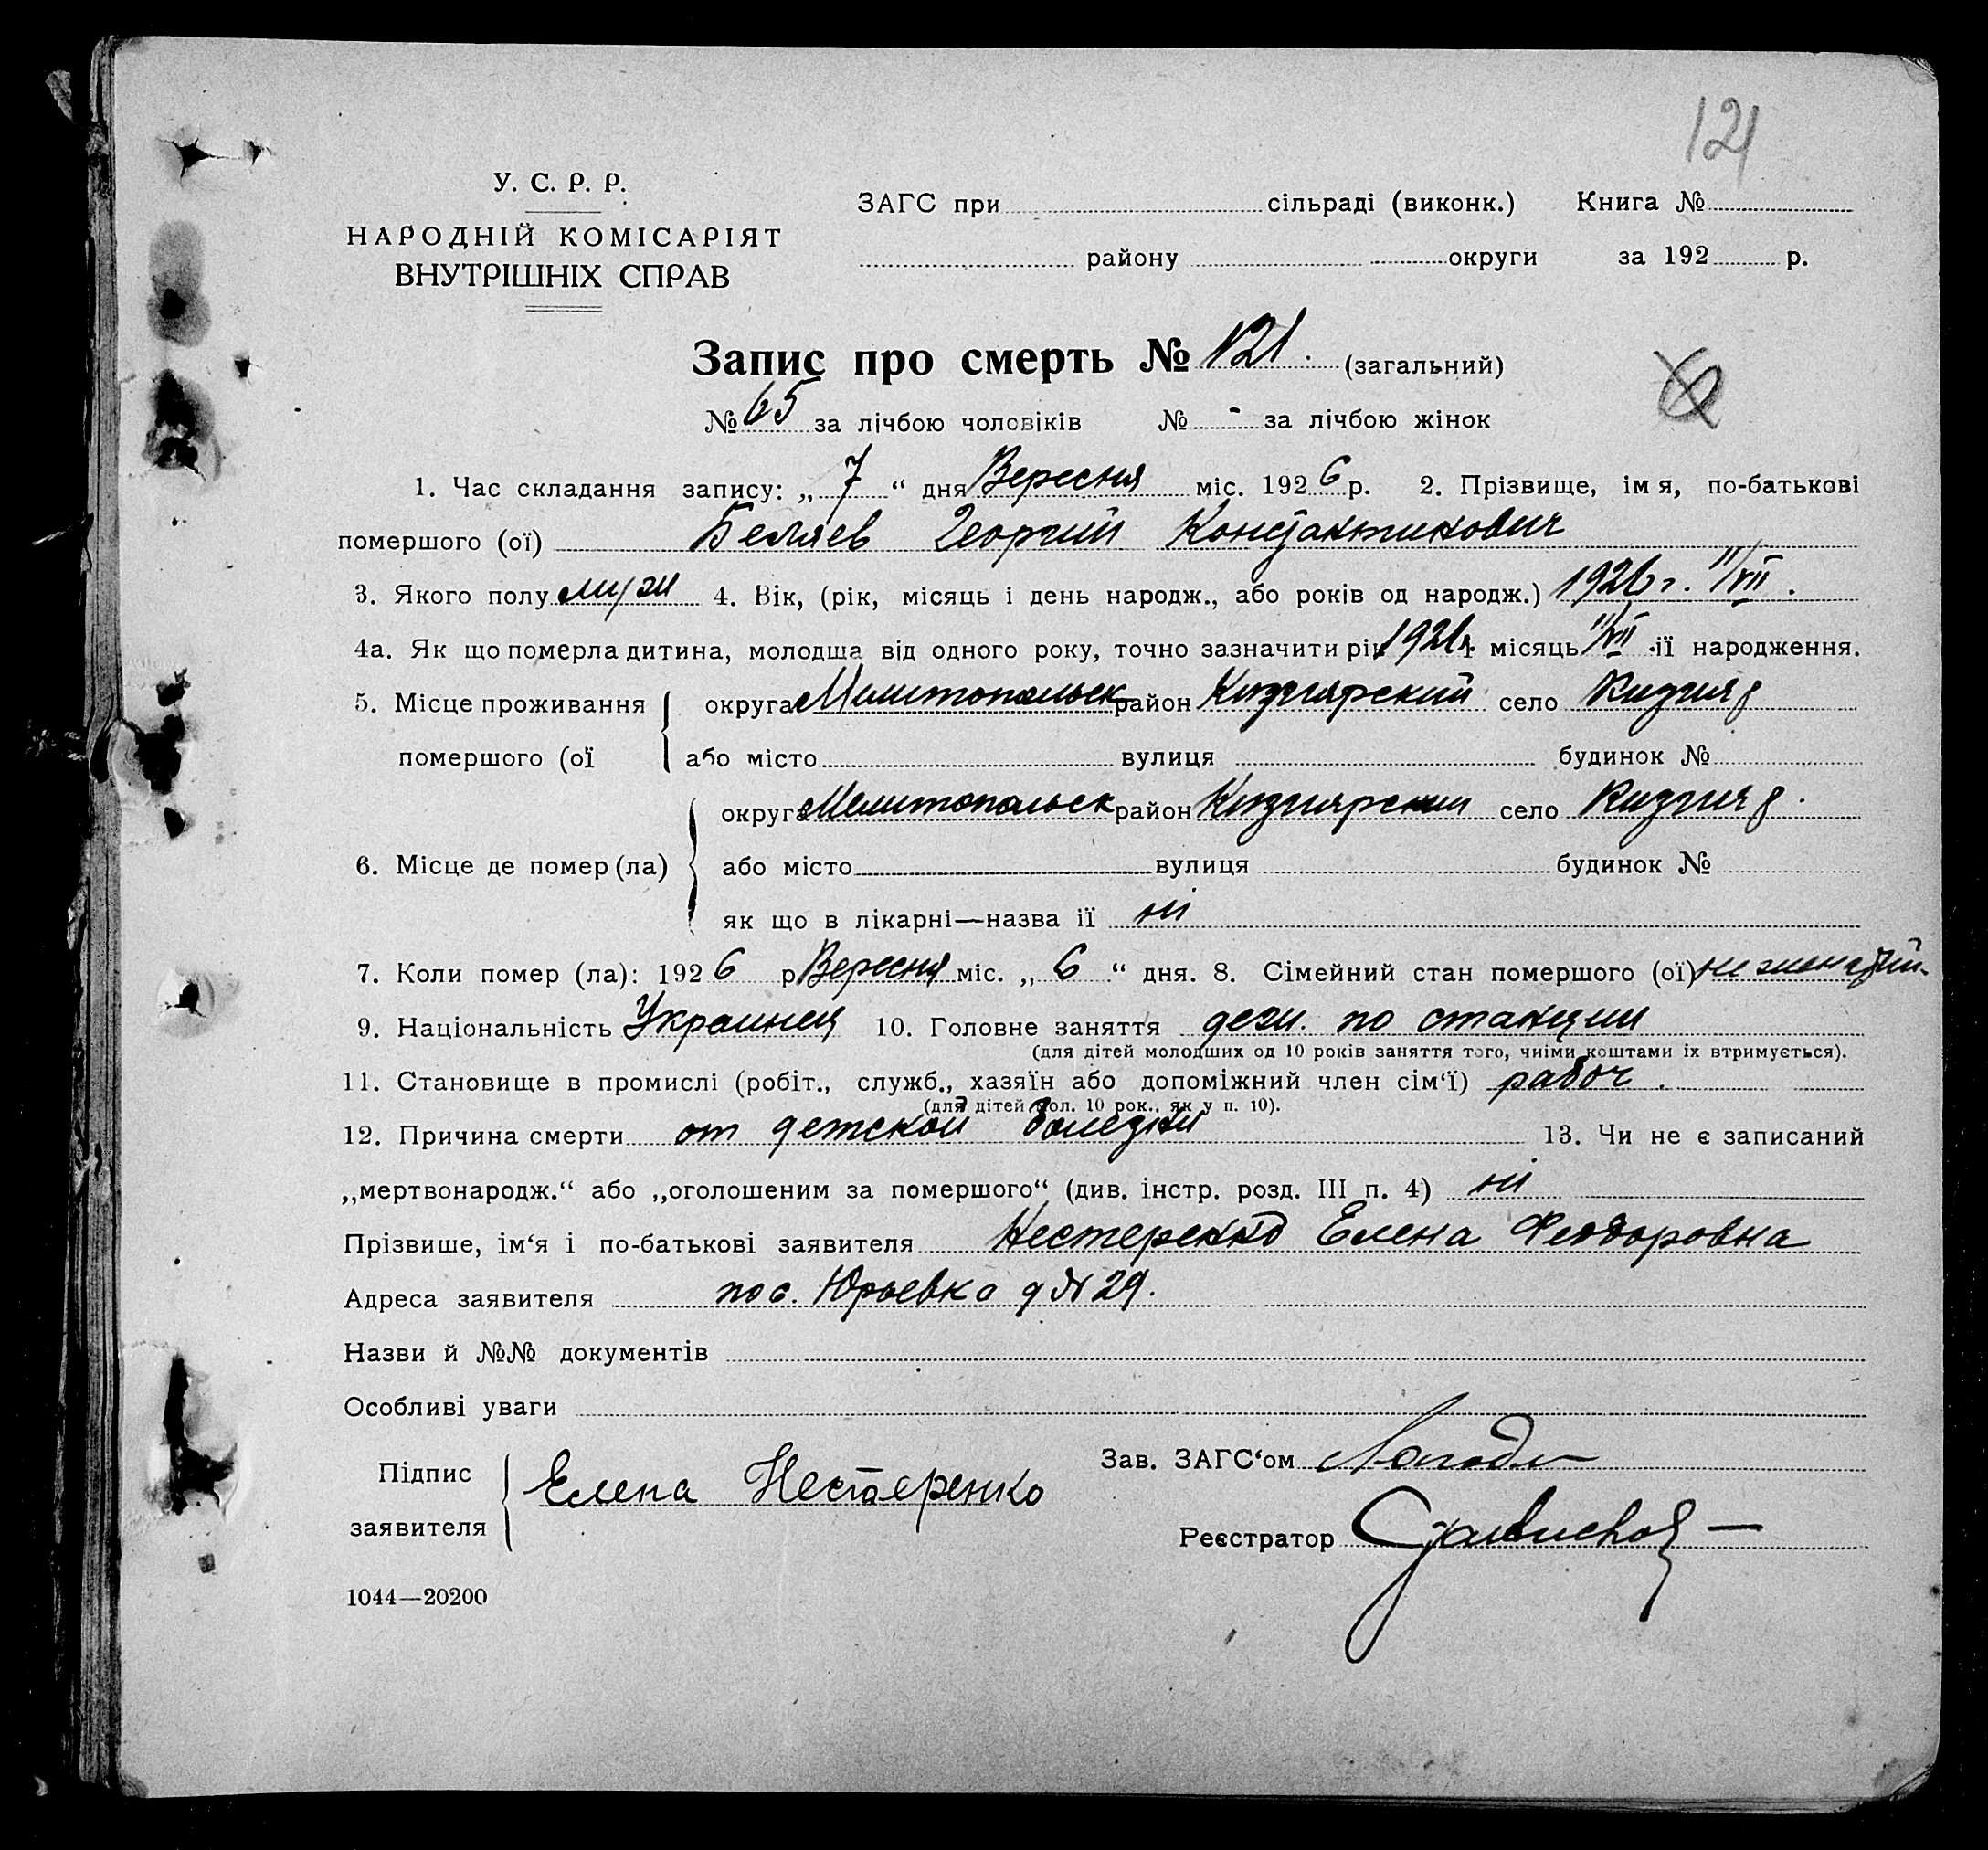 121
У. С. Р. Р.
НАРОДНІЙ КОМІСАРІЯТ
ВНУТРІШНІХ СПРАВ
ЗАГС при сільраді (виконк.) Книга №
району округи за 192 р.
Запис про смерть № 121. (загальний)
№ 65 за лічбою чоловіків № - за лічбою жінок
6
1. Час складання запису: „ 7 “ дня Вересня міс. 1926 р. 2. Прізвище, імя, по-батькові
помершого (ої) Беляев Георгий Константинович
3. Якого полу муж 4. Вік, (рік, місяць і день народж., або років од народж.) 1926 г. 11/VII.
4а. Як що померла дитина, молодша від одного року, точно зазначити рік 1926 г. місяць 11/VII ії народження.
5. Місце проживання округа Мелитопольск район Кизиярский село Кизияр
помершого (ої або місто вулиця будинок №
округа Мелитопольск район Кизиярский село Кизияр.
6. Місце де помер (ла) або місто вулиця будинок №
як що в лікарні—назва ії ні
7. Коли помер (ла): 1926 р Вересня міс. „ 6 “ дня. 8. Сімейний стан помершого (ої) неженатый.
9. Національність Украинец 10. Головне заняття деж. по станции
(для дітей молодших од 10 років заняття того, чиїми коштами їх втримується).
11. Становище в промислі (робіт., служб., хазяїн або допоміжний член сім‘ї) рабоч.
(для дітей мол. 10 рок., як у п. 10).
12. Причина смерти от детской болезни 13. Чи не є записаний
„мертвонародж.“ або „оголошеним за помершого“ (див. інстр. розд. III п. 4) ні
Прізвише, ім‘я і по-батькові заявителя Нестеренко Елена Феодоровна
Адреса заявителя пос. Юрьевка д № 29.
Назви й №№ документів
Особливі уваги
Підпис Елена Нестеренко Зав. ЗАГС‘ом
заявителя Реєстратор
1044—20200